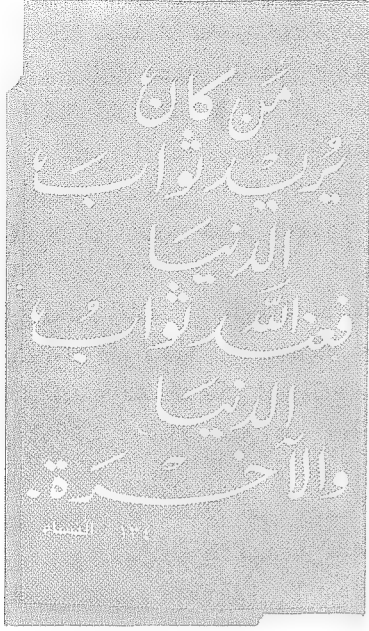 مَن كَانَ
يُرِيدُ ثَوَابَ
الدُّنيَا
فَعِندَ اللَّهِ ثَوَابُ
الدُّنيَا
وَالآخِرَةِ.
١٣٤ النساء